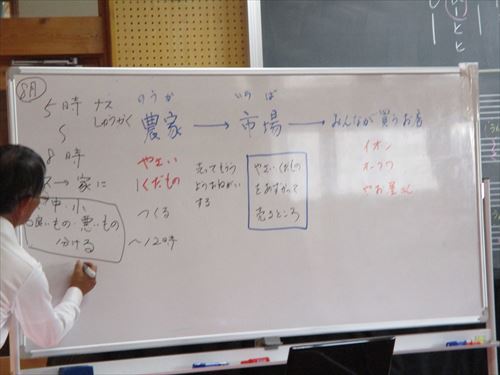 8月
5時 ナス
しゅうかく
8時
→ 家に
中・小
良いもの・悪いもの
分ける
のうか
農家 → 市場 → みんなが買うお店
いちば
やさい
くだもの
つくる
～12時
売ってもらう
ようおねがい
する
やさい・くだもの
をあずかって
売るところ
イオン
オークワ
やお屋さん